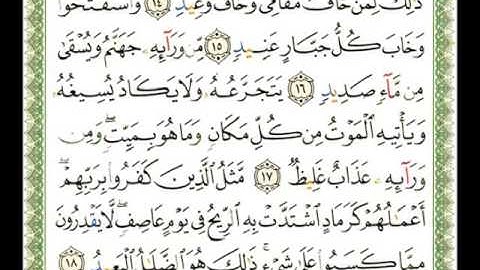 ذَٰلِكَ لِمَنْ خَافَ مَقَامِي وَخَافَ وَعِيدِ ١٤ وَاسْتَفْتَحُوا
وَخَابَ كُلُّ جَبَّارٍ عَنِيدٍ ١٥ مِّن وَرَائِهِ جَهَنَّمُ وَيُسْقَىٰ
مِن مَّاءٍ صَدِيدٍ ١٦ يَتَجَرَّعُهُ وَلَا يَكَادُ يُسِيغُهُ
وَيَأْتِيهِ الْمَوْتُ مِن كُلِّ مَكَانٍ وَمَا هُوَ بِمَيِّتٍ ۖ وَمِن
وَرَائِهِ عَذَابٌ غَلِيظٌ ١٧ مَّثَلُ الَّذِينَ كَفَرُوا بِرَبِّهِمْ ۖ
أَعْمَالُهُمْ كَرَمَادٍ اشْتَدَّتْ بِهِ الرِّيحُ فِي يَوْمٍ عَاصِفٍ ۖ لَّا يَقْدِرُونَ
مِمَّا كَسَبُوا عَلَىٰ شَيْءٍ ۚ ذَٰلِكَ هُوَ الضَّلَالُ الْبَعِيدُ ١٨